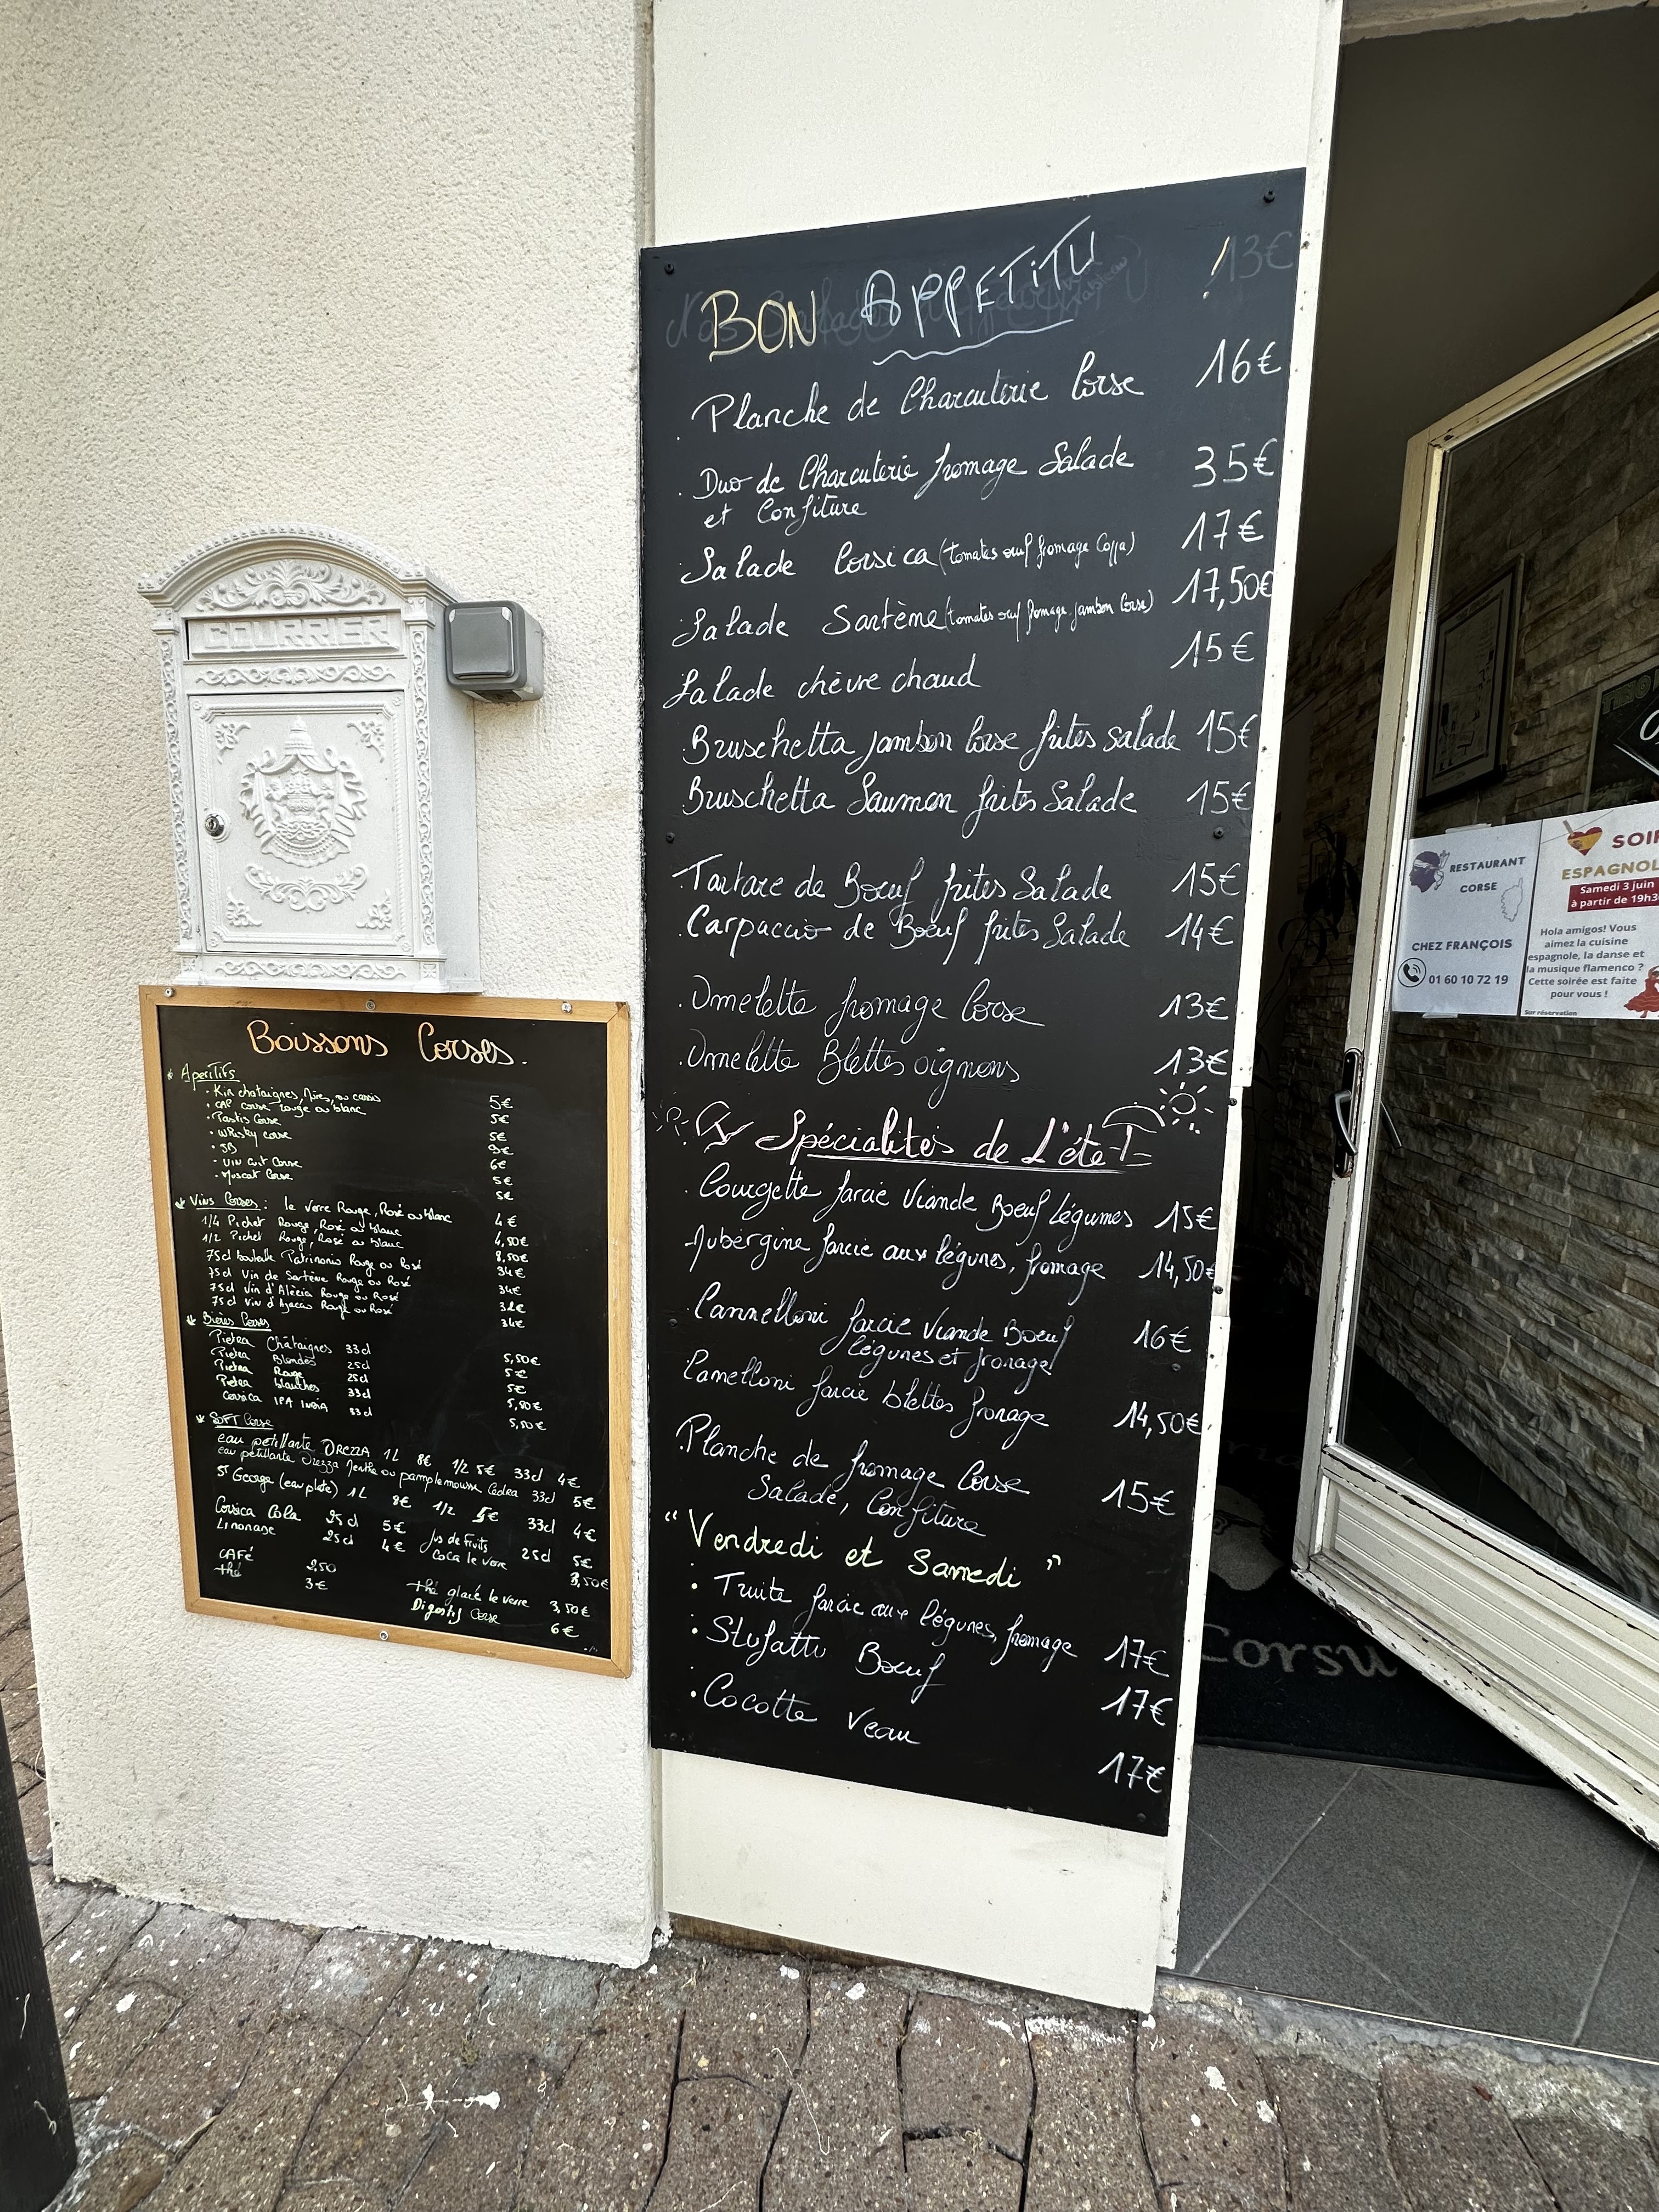 BON APPETITU !
13€
Planche de Charcuterie Corse 16€
Duo de Charcuterie fromage Salade 35€
et Confiture
Salade Corsica (tomates œuf fromage Coppa) 17€
Salade Sartène (tomates œuf fromage jambon Corse) 17,50€
Salade chèvre chaud 15€
Bruschetta jambon Corse frites Salade 15€
Bruschetta Saumon frites Salade 15€
Tartare de Bœuf frites Salade 15€
Carpaccio de Bœuf frites Salade 14€
Omelette fromage Corse 13€
Omelette Blettes oignons 13€
Spécialités de L'été
Courgette farcie Viande Boeuf Légumes 15€
Aubergine farcie aux légumes, fromage 14,50€
Cannelloni farcie Viande Boeuf 16€
légumes et fromage
Canelloni farcie blettes fromage 14,50€
Planche de fromage Corse 15€
Salade, Confiture
"Vendredi et Samedi"
Truite farcie aux légumes, fromage 17€
Stufattu Bœuf 17€
Cocotte Veau 17€
COURRIER
Boissons Corses.
Aperitifs
Kir chataignes, Mires, ou cassis 5€
CAP corse rouge ou blanc 5€
Pastis Corse 5€
Whisky corse
JB 6€
Vin cuit Corse 5€
Muscat Corse 5€
Vins Corses: le verre Rouge, Rosé ou blanc 4€
1/4 Pichet Rouge, Rosé ou blanc 4,50€
1/2 Pichet Rouge, Rosé ou blanc 8,50€
75cl bouteille Patrimonio Rouge ou Rosé 34€
75cl Vin de Sartène Rouge ou Rosé 34€
75cl Vin d'Aléria Rouge ou Rosé 32€
75cl Vin d'Ajaccio Rouge ou Rosé 34€
Bières Corses
Pietra Châtaignes 33cl 5,50€
Pietra Blondes 25cl 5€
Pietra Rouge 25cl 5€
Pietra blanches 33cl 5,50€
Corsica IPA Inoia 33cl 5,50€
SOFT Corse
eau petillante OREZZA 1L 8€ 1/2 5€ 33cl 4€
eau petillante Orezza Menthe ou pamplemousse Cedra 33cl 5€
St George (eau plate) 1L 8€ 1/2 5€ 33cl 4€
Corsica Cola 25cl 5€ Jus de Fruits 25cl 5€
Limonade 25cl 4€ Coca le verre 3,50€
CAFÉ 2,50
thé 3€ thé glacé le verre 3,50€
Digestif Corse 6€
RESTAURANT
CORSE
CHEZ FRANÇOIS
01 60 10 72 19
SOIR
ESPAGNOL
Samedi 3 juin
à partir de 19h3
Hola amigos! Vous
aimez la cuisine
espagnole, la danse et
la musique flamenco ?
Cette soirée est faite
pour vous !
Sur réservation
Corsu